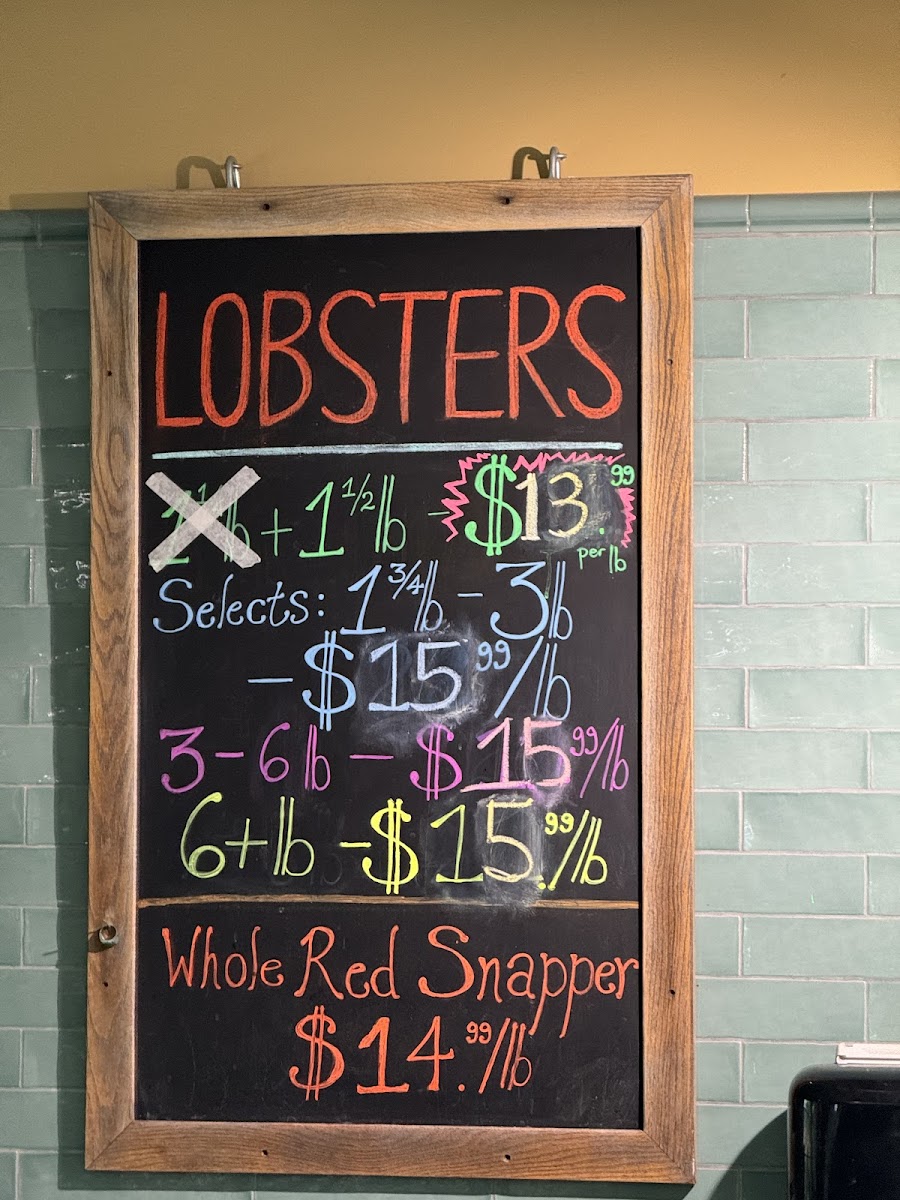 LOBSTERS
lb + 1 1/2 lb - $13.99
per lb
Selects: 1 3/4 lb - 3 lb
- $15 99/lb
3 - 6 lb - $15 99/lb
6+ lb - $15.99/lb
Whole Red Snapper
$14.99/lb